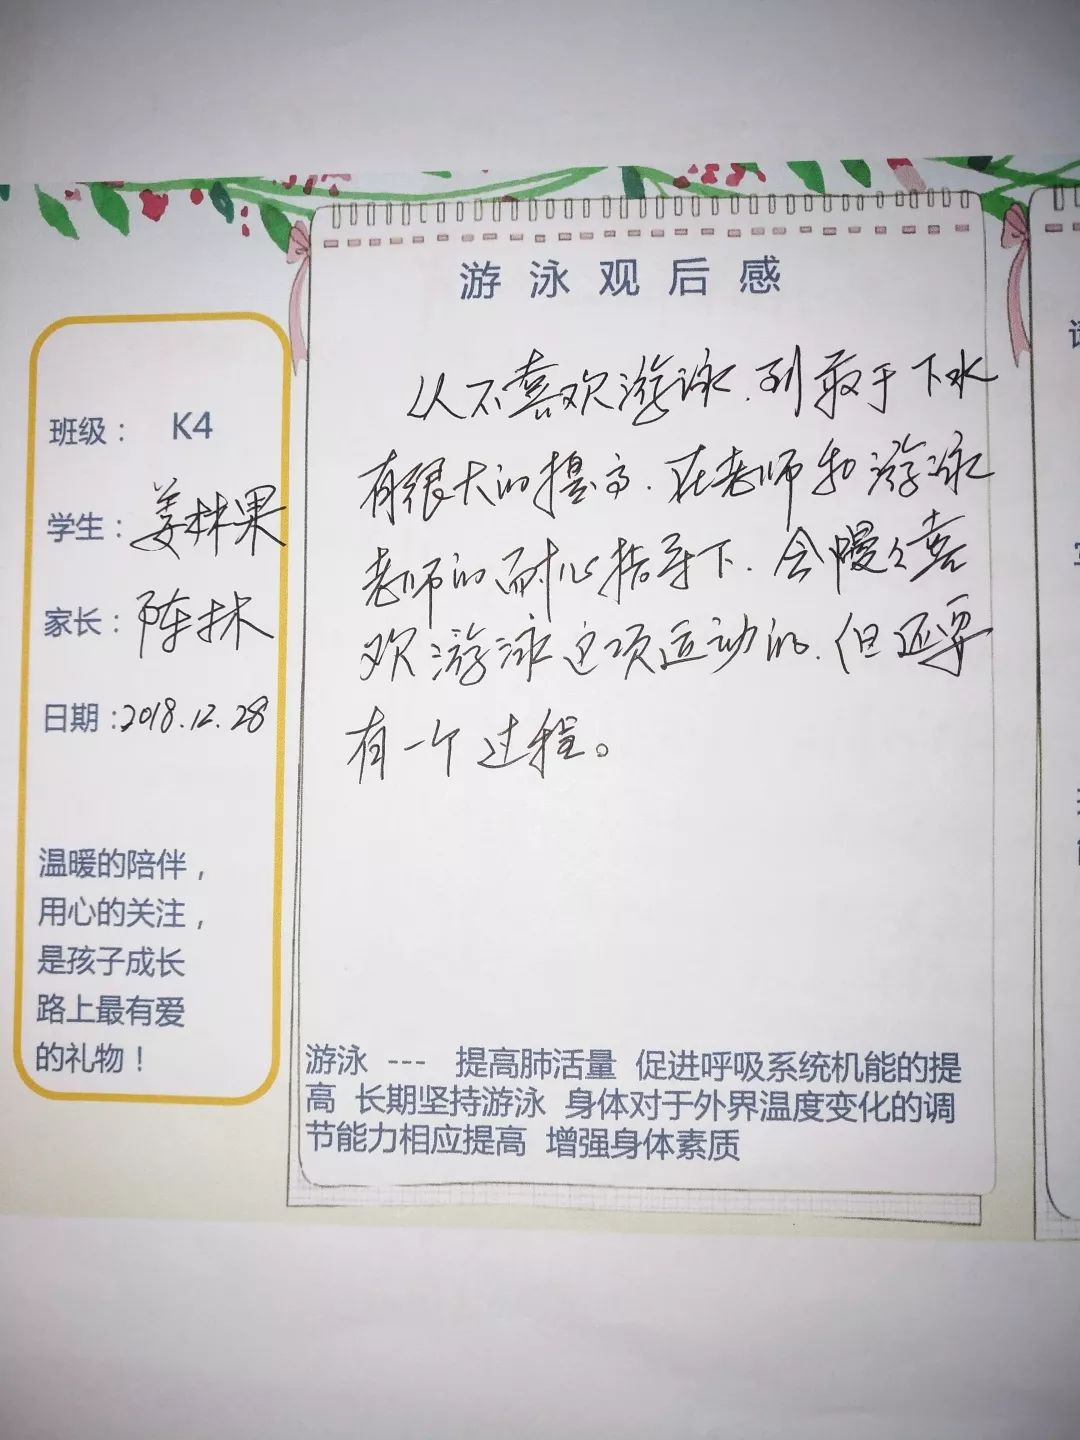 班级： K4
学生：姜林果
家长：陈林
日期：2018.12.28
温暖的陪伴，
用心的关注，
是孩子成长
路上最有爱
的礼物！
游泳观后感
从不喜欢游泳.到敢于下水
有很大的提高.在老师和游泳
老师的耐心指导下.会慢々喜
欢游泳这项运动的.但还要
有一个过程。
游泳 --- 提高肺活量 促进呼吸系统机能的提
高 长期坚持游泳 身体对于外界温度变化的调
节能力相应提高 增强身体素质